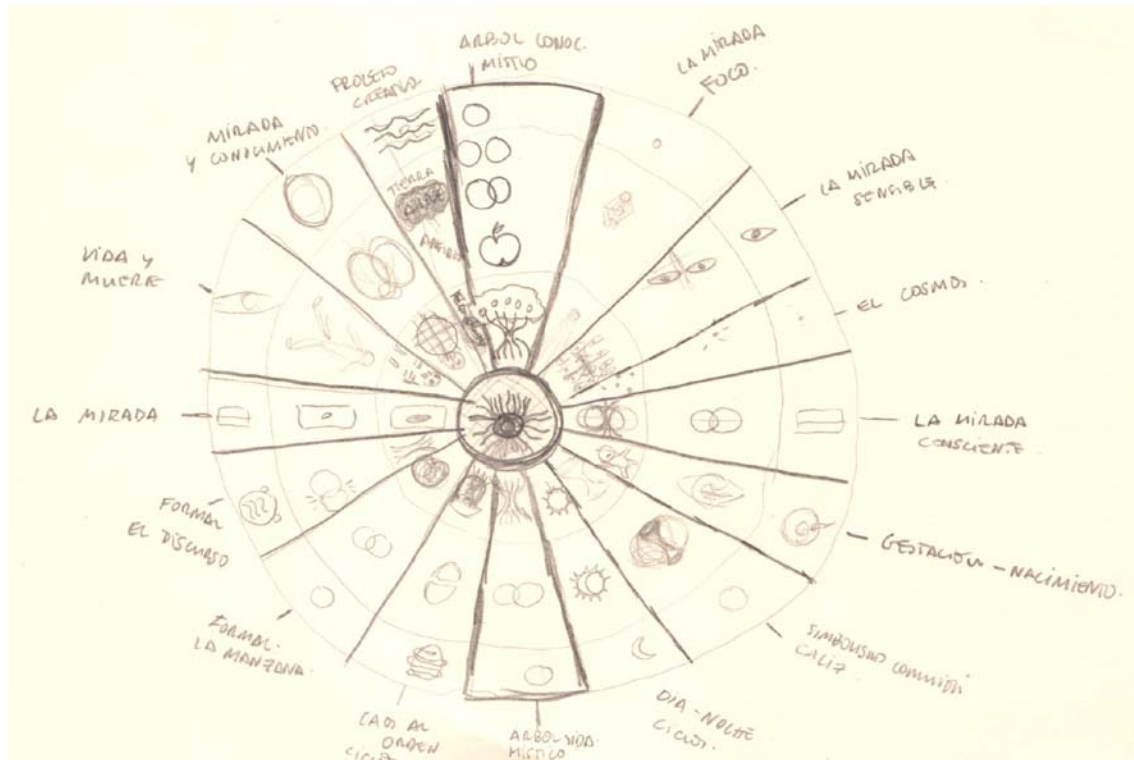 ARBOL CONOC.
MÍSTICO
LA MIRADA
FOCO.
LA MIRADA
SENSIBLE.
EL COSMOS.
LA MIRADA
CONSCIENTE.
GESTACIÓN - NACIMIENTO.
SIMBOLISMO
CALIZ
DIA - NOCHE
CICLOS.
ARBOL VIDA.
MÍSTICO
CAOS AL
ORDEN
FORMAL.
LA MANZANA.
FORMAL
EL DISCURSO
LA MIRADA
VIDA Y
MUERTE
MIRADA
Y CONOCIMIENTO.
TIERRA